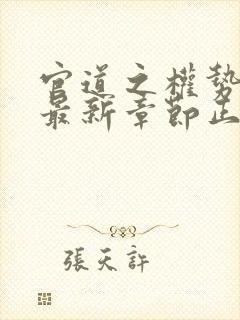 官道之權勢
最新章節止
張天許